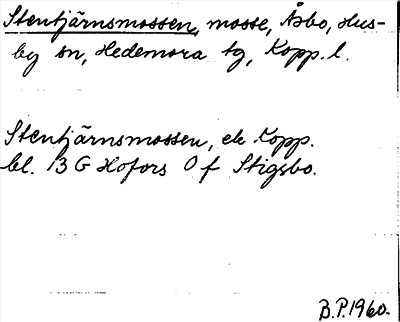 Stentjärnsmossen, mosse, Åsbo, Hus-
by sn, Hedemora tg, Kopp. l.
Stentjärnsmossen, ek Kopp.
bl. 13 G Hofors 0 f Stigsbo.
B.P. 1960.